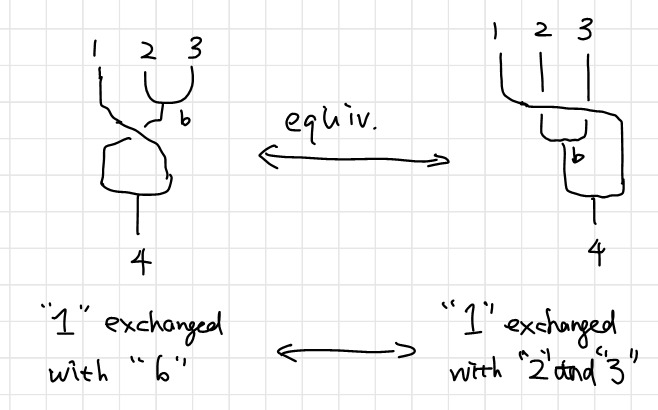 1 2 3
b
4
equiv.
1 2 3
b
4
"1" exchanged
with "b"
"1" exchanged
with "2" and "3"